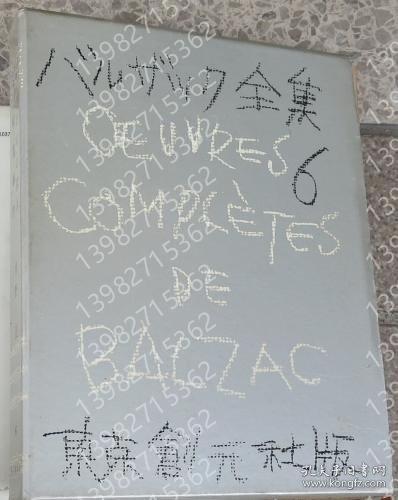 バルザック全集
OEUVRES
6
COMPLÈTES
DE
BALZAC
東京創元社版
13982715362
孔夫子旧书网
www.kongfz.com